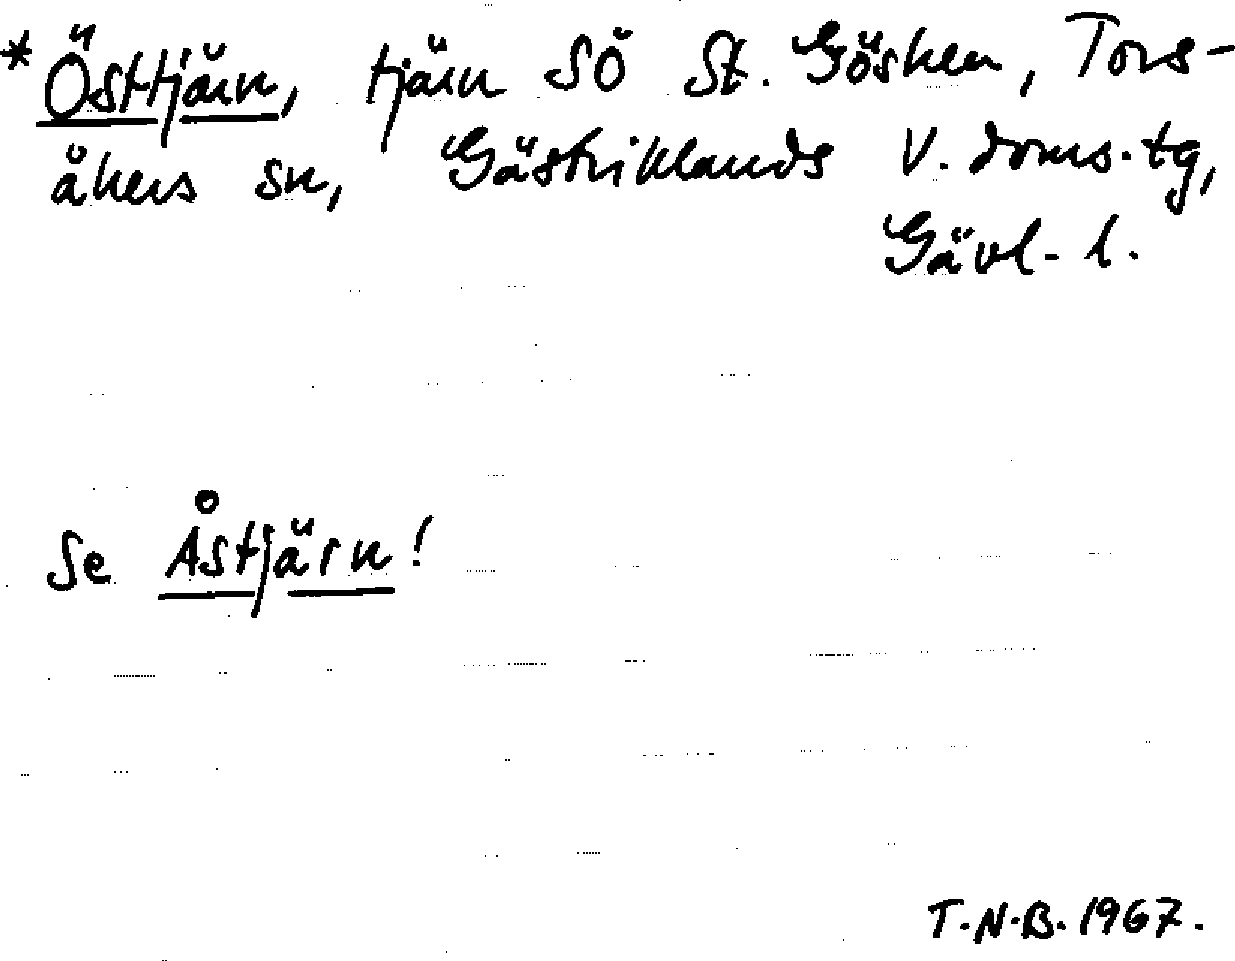 *Östtjärn, tjärn SÖ St. Gösken, Tors-
åkers sn, Gästriklands V. doms.tg,
Gävl. l.
Se Åstjärn!
T.N.B. 1967.